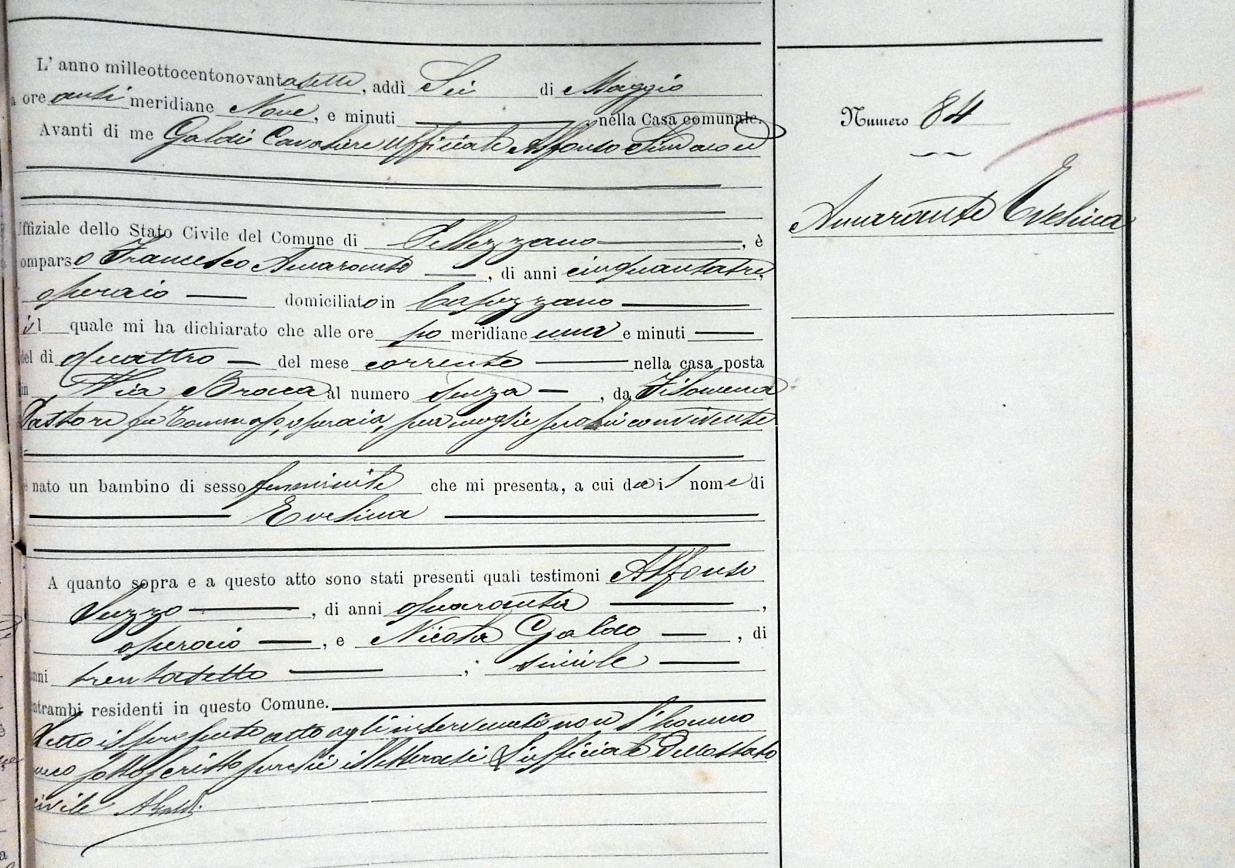 L' anno milleottocentonovantasette, addi Sei di Maggio
a ore anti meridiane Nove, e minuti nella Casa comunale.
Avanti di me Galdi Cavaliere Ufficiale Alfonso Sindaco ed
Uffiziale dello Stato Civile del Comune di Pellezzano, è
comparso Francesco Amarante, di anni cinquantatre,
operaio domiciliato in Capezzano
il quale mi ha dichiarato che alle ore po meridiane una e minuti
del dì quattro del mese corrente nella casa posta
in Via Brocca al numero senza, da Filomena
Pastore fu Tommaso, operaia, sua moglie seco lui convivente
è nato un bambino di sesso femminile che mi presenta, a cui dà il nome di
Evelina
A quanto sopra e a questo atto sono stati presenti quali testimoni Alfonso
, di anni quaranta,
operaio, e Nicola Galdo, di
anni trentasette, simile
entrambi residenti in questo Comune.
Letto il presente atto agli intervenuti non l'hanno
meco sottoscritto perché illetterati. L'ufficiale dello stato
civile AGaldi
Numero 84
Amarante Evelina